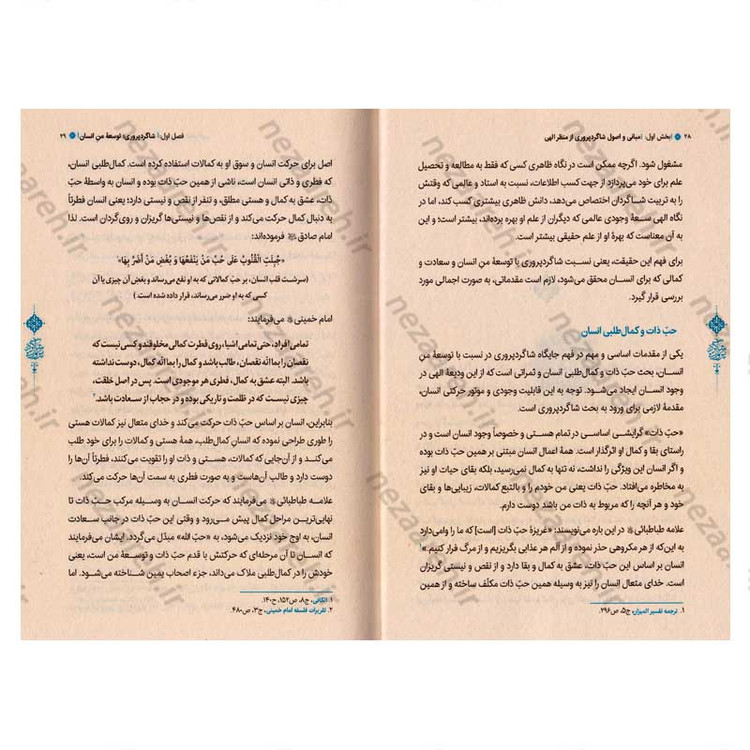 ۲۸ | بخش اول: | مبانی و اصول شاگردپروری از منظر الهی
مشغول شود. اگرچه ممکن است در نگاه ظاهری کسی که فقط به مطالعه و تحصیل
علم برای خود می‌پردازد از جهت کسب اطلاعات، نسبت به استاد و عالمی که وقتش
را به تربیت شاگردان اختصاص می‌دهد، دانش ظاهری بیشتری کسب کند، اما در
نگاه الهی سعهٔ وجودی عالمی که دیگران از علم او بهره برده‌اند، بیشتر است؛ و این
به آن معناست که بهرهٔ او از علم حقیقی بیشتر است.
برای فهم این حقیقت، یعنی نسبت شاگردپروری با توسعهٔ منِ انسان و سعادت و
کمالی که برای انسان محقق می‌شود، لازم است مقدماتی، به صورت اجمالی مورد
بررسی قرار گیرد.
حبّ ذات و کمال‌طلبی انسان
یکی از مقدمات اساسی و مهم در فهم جایگاه شاگردپروری در نسبت با توسعهٔ منِ
انسان، بحث حبّ ذات و کمال‌طلبی انسان و ثمراتی است که از این ودیعهٔ الهی در
وجود انسان ایجاد می‌شود. توجه به این قابلیت وجودی و موتور حرکتی انسان،
مقدمهٔ لازمی برای ورود به بحث شاگردپروری است.
«حبّ ذات» گرایشی اساسی در تمام هستی و خصوصاً وجود انسان است و در
راستای بقا و کمال او اثرگذار است. همهٔ اعمال انسان مبتنی بر همین حبّ ذات بوده
و اگر انسان این ویژگی را نداشت، نه تنها به کمال نمی‌رسید، بلکه بقای حیات او نیز
به مخاطره می‌افتاد. حبّ ذات یعنی من خودم را و بالتبع کمالات، زیبایی‌ها و بقای
خود و هر آنچه را که مربوط به ذات من باشد دوست دارم.
علامه طباطبائی در این باره می‌نویسند: «غریزهٔ حبّ ذات [است] که ما را وامی‌دارد
به این‌که از هر مکروهی حذر نموده و از الم هر عذابی بگریزیم و از مرگ فرار کنیم.»۱
بر اساس این حبّ ذات، عشق به کمال و بقا دارد و از نقص و نیستی گریزان
است. خدای متعال انسان را نیز به وسیله همین حبّ ذات مکلّف ساخته و از همین
۱. ترجمه تفسیر المیزان، ج۵، ص۲۹۶.
فصل اول: | شاگردپروری؛ توسعهٔ منِ انسان | ۲۹
اصل برای حرکت انسان و سوق او به کمالات استفاده کرده است. کمال‌طلبی انسان،
که فطری و ذاتی انسان است، ناشی از همین حبّ ذات بوده و انسان به واسطهٔ حبّ
ذات، عشق به کمال و هستی مطلق، و تنفر از نقص و نیستی دارد؛ یعنی انسان فطرتاً
به دنبال کمال حرکت می‌کند و از نقص‌ها و نیستی‌ها گریزان و روی‌گردان است. لذا
امام صادق فرموده‌اند:
«جُبِلَتِ الْقُلُوبُ عَلَى حُبِّ مَنْ يَنْفَعُهَا وَ بُغْضِ مَنْ أَضَرَّ بِهَا»۱
(سرشت قلب انسان، بر حبّ کمالاتی که به او نفع می‌رساند و بغضِ آن چیزی یا آن
کسی که به او ضرر می‌رساند، قرار داده شده است.)
امام خمینی می‌فرمایند:
تمامی افراد، حتی تمامی اشیا، روی فطرت کمالی مخلوقند و کسی نیست که
نقصان را بما أنه نقصان، طالب باشد و کمال را بما أنه کمال، دوست نداشته
باشد. البته عشق به کمال، فطری هر موجودی است. پس در اصل خلقت،
چیزی نیست که در ظلمت و تاریکی بوده و در حجاب از سعادت باشد.۲
بنابراین، انسان بر اساس حبّ ذات حرکت می‌کند و خدای متعال نیز کمالات هستی
را طوری طراحی نموده که انسانِ کمال‌طلب، همهٔ هستی و کمالات را برای خود طلب
می‌کند؛ و از آن‌جایی که کمالات، هستی و ذات او را تقویت می‌کنند، فطرتاً آن‌ها را
دوست دارد و طالب آن‌هاست و به صورت فطری به سمت آن‌ها حرکت می‌کند.
علامه طباطبائی می‌فرمایند که حرکت انسان به وسیله مرکب حبّ ذات تا
نهایی‌ترین مراحل کمال پیش می‌رود و وقتی این حبّ ذات در جانب سعادت
انسان، به اوج خود نزدیک می‌شود، به «حبّ الله» مبدّل می‌گردد. ایشان می‌فرمایند
که انسان تا آن مرحله‌ای که حرکتش با قدم حبّ ذات و توسعهٔ من است، یعنی
خودش را در کمال‌طلبی ملاک می‌داند، جزء اصحاب یمین شناخته می‌شود. اما
۱. الکافی، ج۸، ص۱۵۲، ح۱۴۰.
۲. تقریرات فلسفه امام خمینی، ج۳، ص۴۸۰.
nezaareh.ir